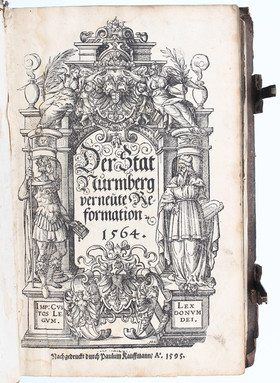 Der Stat
Nürmberg
verneüte Re-
formation.
1564.
IMP: CVS
TOS LE
GVM.
LEX
DONVM
DEI.
Nachgedruckt durch Paulum Kauffmann/ Aº, 1595.